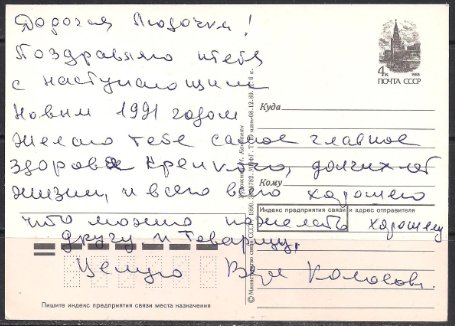 Дорогая Людочка!
Поздравляю тебя
с наступающим
Новым 1991 годом
Желаю тебе самое главное
здоровья крепкого, долгих лет
жизни, и всего всего хорошего
что можно пожелать хорошему
другу и товарищу.
Целую Колосов.
4 к
1988
ПОЧТА СССР
Куда
Кому
Индекс предприятия связи и адрес отправителя
Пишите индекс предприятия связи места назначения